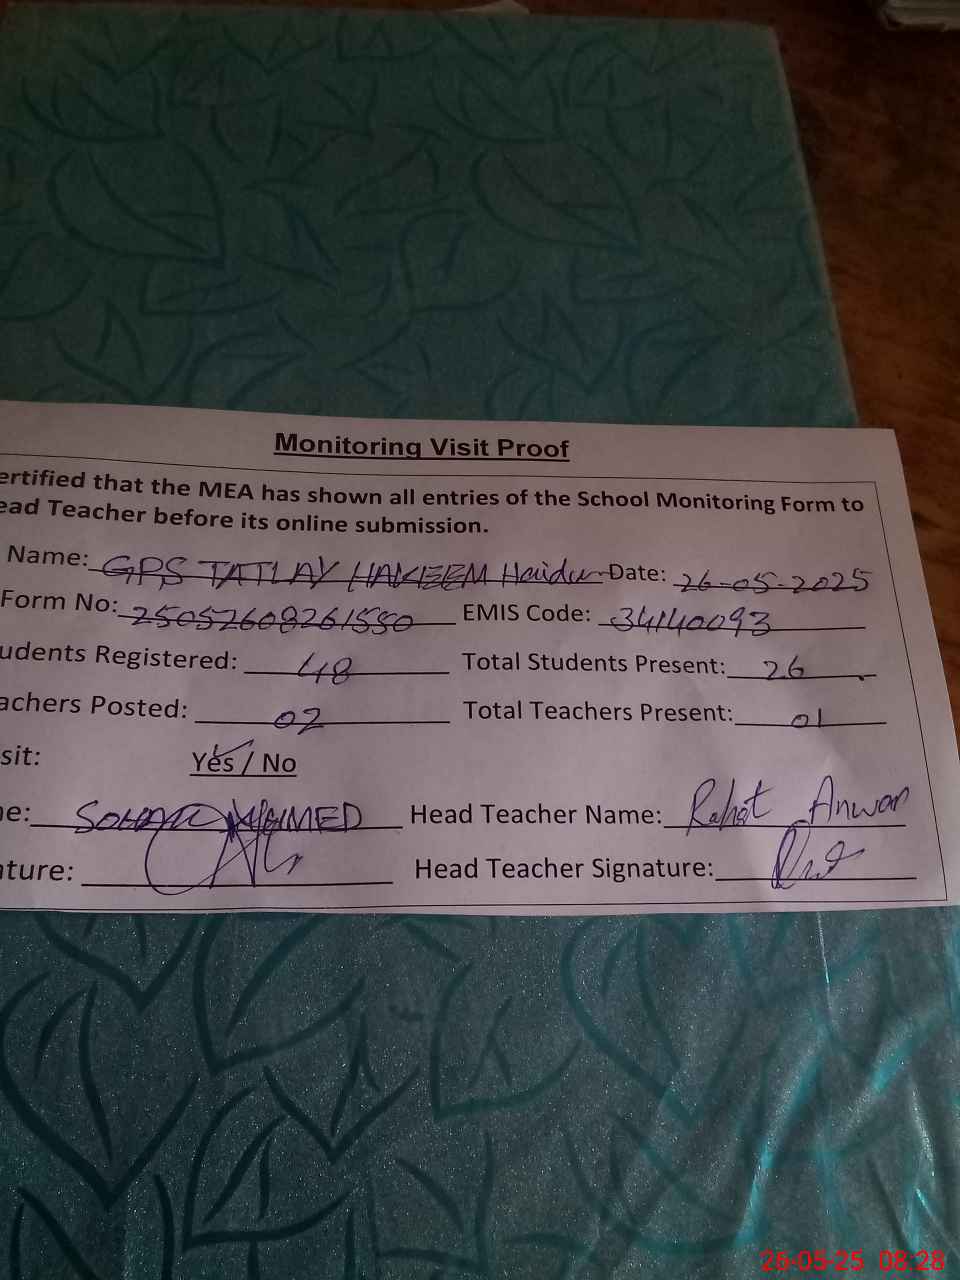 Monitoring Visit Proof
ertified that the MEA has shown all entries of the School Monitoring Form to
ead Teacher before its online submission.
Name: GPS TATLAY HAKEEM Haider Date: 26-05-2025
Form No: 25052608261550 EMIS Code: 34140093
udents Registered: 48 Total Students Present: 26
achers Posted: 02 Total Teachers Present: 01
sit: Yes / No
e: AHMED Head Teacher Name: Rahat Anwar
ture: Head Teacher Signature:
26-05-25 08:28